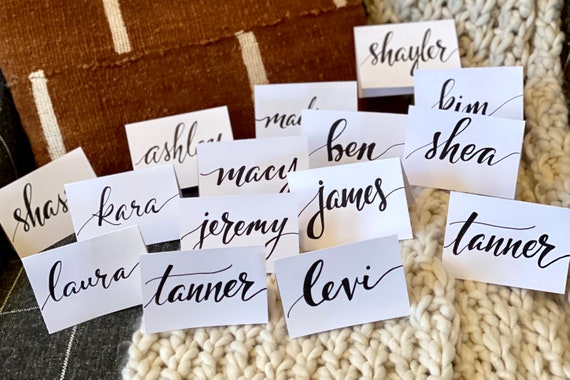 shayler
kim
ashley
ben
shea
macy
kara
james
jeremy
tanner
laura
tanner
levi